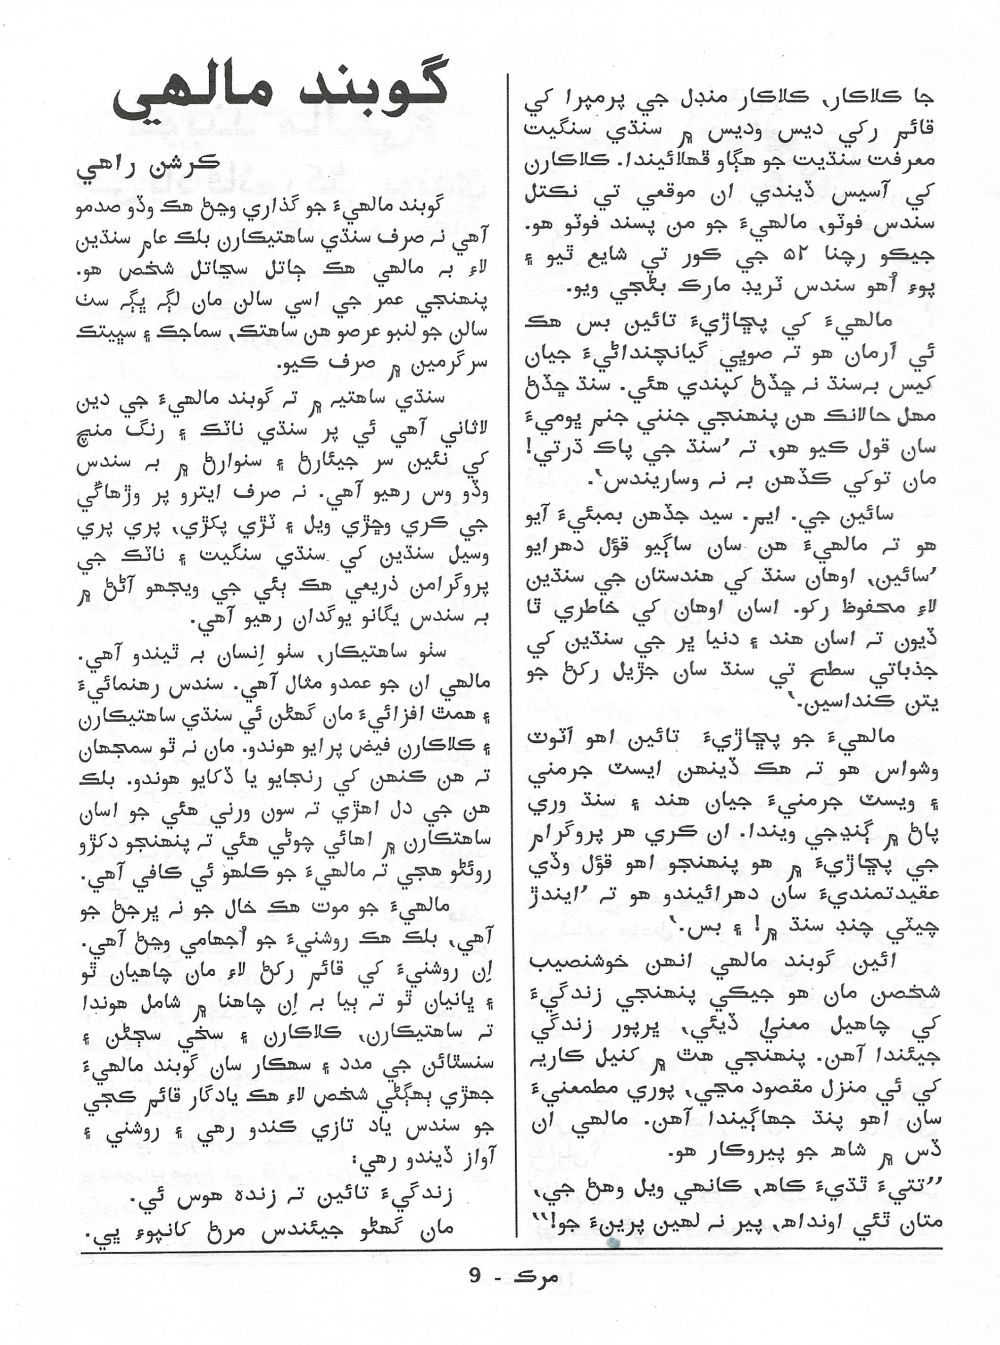 جا ڪلاڪار، ڪلاڪار منڊل جي پرمپرا کي
قائم رکي ديس وديس ۾ سنڌي سنگيت
معرفت سنڌيت جو هڳاءُ ڦهلائيندا. ڪلاڪارن
کي آسيس ڏيندي ان موقعي تي نڪتل
سندس فوٽو، مالهيءَ جو من پسند فوٽو هو.
جيڪو رچنا ۵۲ جي ڪور تي شايع ٿيو ۽
پوءِ اُهو سندس ٽريڊ مارڪ بڻجي ويو.
مالهيءَ کي پڇاڙيءَ تائين بس هڪ
ئي آرمان هو تہ صوڀي گيانچنداڻيءَ جيان
کيس بہ سنڌ نہ ڇڏڻ کپندي هئي. سنڌ ڇڏڻ
مهل حالانڪ هن پنهنجي جنني جنم ڀوميءَ
سان قول ڪيو هو، تہ ’سنڌ جي پاڪ ڌرتي!
مان توکي ڪڏهن بہ نہ وساريندس‘.
سائين جي. ايم. سيد جڏهن بمبئيءَ آيو
هو تہ مالهيءَ هن سان ساڳيو قؤل دهرايو
’سائين، اوهان سنڌ کي هندستان جي سنڌين
لاءِ محفوظ رکو. اسان اوهان کي خاطري ٿا
ڏيون تہ اسان هند ۽ دنيا ڀر جي سنڌين کي
جذباتي سطح تي سنڌ سان جڙيل رکڻ جو
يتن ڪنداسين.‘
مالهيءَ جو پڇاڙيءَ تائين اهو اٽوٽ
وشواس هو تہ هڪ ڏينهن ايسٽ جرمني
۽ ويسٽ جرمنيءَ جيان هند ۽ سنڌ وري
پاڻ ۾ ڳنڍجي ويندا. ان ڪري هر پروگرام
جي پڇاڙيءَ ۾ هو پنهنجو اهو قؤل وڏي
عقيدتمنديءَ سان دهرائيندو هو تہ ’ايندڙ
چيٽي چنڊ سنڌ ۾! ۽ بس.‘
ائين گوبند مالهي انهن خوشنصيب
شخصن مان هو جيڪي پنهنجي زندگيءَ
کي چاهيل معنيٰ ڏيئي، ڀرپور زندگي
جيئندا آهن. پنهنجي هٿ ۾ کنيل ڪاريہ
کي ئي منزل مقصود مڃي، پوري مطمعنيءَ
سان اهو پنڌ جهاڳيندا آهن. مالهي ان
ڏس ۾ شاهہ جو پيروڪار هو.
”تتيءَ ٿڌيءَ ڪاهہ، ڪانهي ويل وهڻ جي،
متان ٿئي اونداهہ، پير نہ لهين پرينءَ جو!“
گوبند مالهي
ڪرشن راهي
گوبند مالهيءَ جو گذاري وڃڻ هڪ وڏو صدمو
آهي نہ صرف سنڌي ساهتيڪارن بلڪ عام سنڌين
لاءِ بہ مالهي هڪ ڄاتل سڃاتل شخص هو.
پنهنجي عمر جي اسي سالن مان لڳہ ڀڳہ سٺ
سالن جو لنبو عرصو هن ساهتڪ، سماجڪ ۽ سڀيتڪ
سرگرمين ۾ صرف ڪيو.
سنڌي ساهتيہ ۾ تہ گوبند مالهيءَ جي دين
لاثاني آهي ئي پر سنڌي ناٽڪ ۽ رنگ منچ
کي نئين سر جيئارڻ ۽ سنوارڻ ۾ بہ سندس
وڏو وس رهيو آهي. نہ صرف ايترو پر ورهاڱي
جي ڪري وڇڙي ويل ۽ ٽڙي پکڙي، پري پري
وسيل سنڌين کي سنڌي سنگيت ۽ ناٽڪ جي
پروگرامن ذريعي هڪ ٻئي جي ويجهو آڻڻ ۾
بہ سندس يگانو يوگدان رهيو آهي.
سٺو ساهتيڪار، سٺو اِنسان بہ ٿيندو آهي.
مالهي ان جو عمدو مثال آهي. سندس رهنمائيءَ
۽ همٿ افزائيءَ مان گهڻن ئي سنڌي ساهتيڪارن
۽ ڪلاڪارن فيض پرايو هوندو. مان نہ ٿو سمجهان
تہ هن ڪنهن کي رنجايو يا ڏکايو هوندو. بلڪ
هن جي دل اهڙي تہ سون ورني هئي جو اسان
ساهتڪارن ۾ اهائي چوڻي هئي تہ پنهنجو دکڙو
روئڻو هجي تہ مالهيءَ جو ڪلهو ئي ڪافي آهي.
مالهيءَ جو موت هڪ خال جو نہ ڀرجڻ جو
آهي، بلڪ هڪ روشنيءَ جو اُجهامي وڃڻ آهي.
اِن روشنيءَ کي قائم رکڻ لاءِ مان چاهيان ٿو
۽ ڀانيان ٿو تہ ٻيا بہ اِن چاهنا ۾ شامل هوندا
تہ ساهتيڪارن، ڪلاڪارن ۽ سخي سڄڻن ۽
سنستائن جي مدد ۽ سهڪار سان گوبند مالهيءَ
جهڙي ٻهڳڻي شخص لاءِ هڪ يادگار قائم ڪجي
جو سندس ياد تازي ڪندو رهي ۽ روشني ۽
آواز ڏيندو رهي:
زندگيءَ تائين تہ زنده هوس ئي.
مان گهڻو جيئندس مرڻ کانپوءِ ڀي.
مرڪ - 9